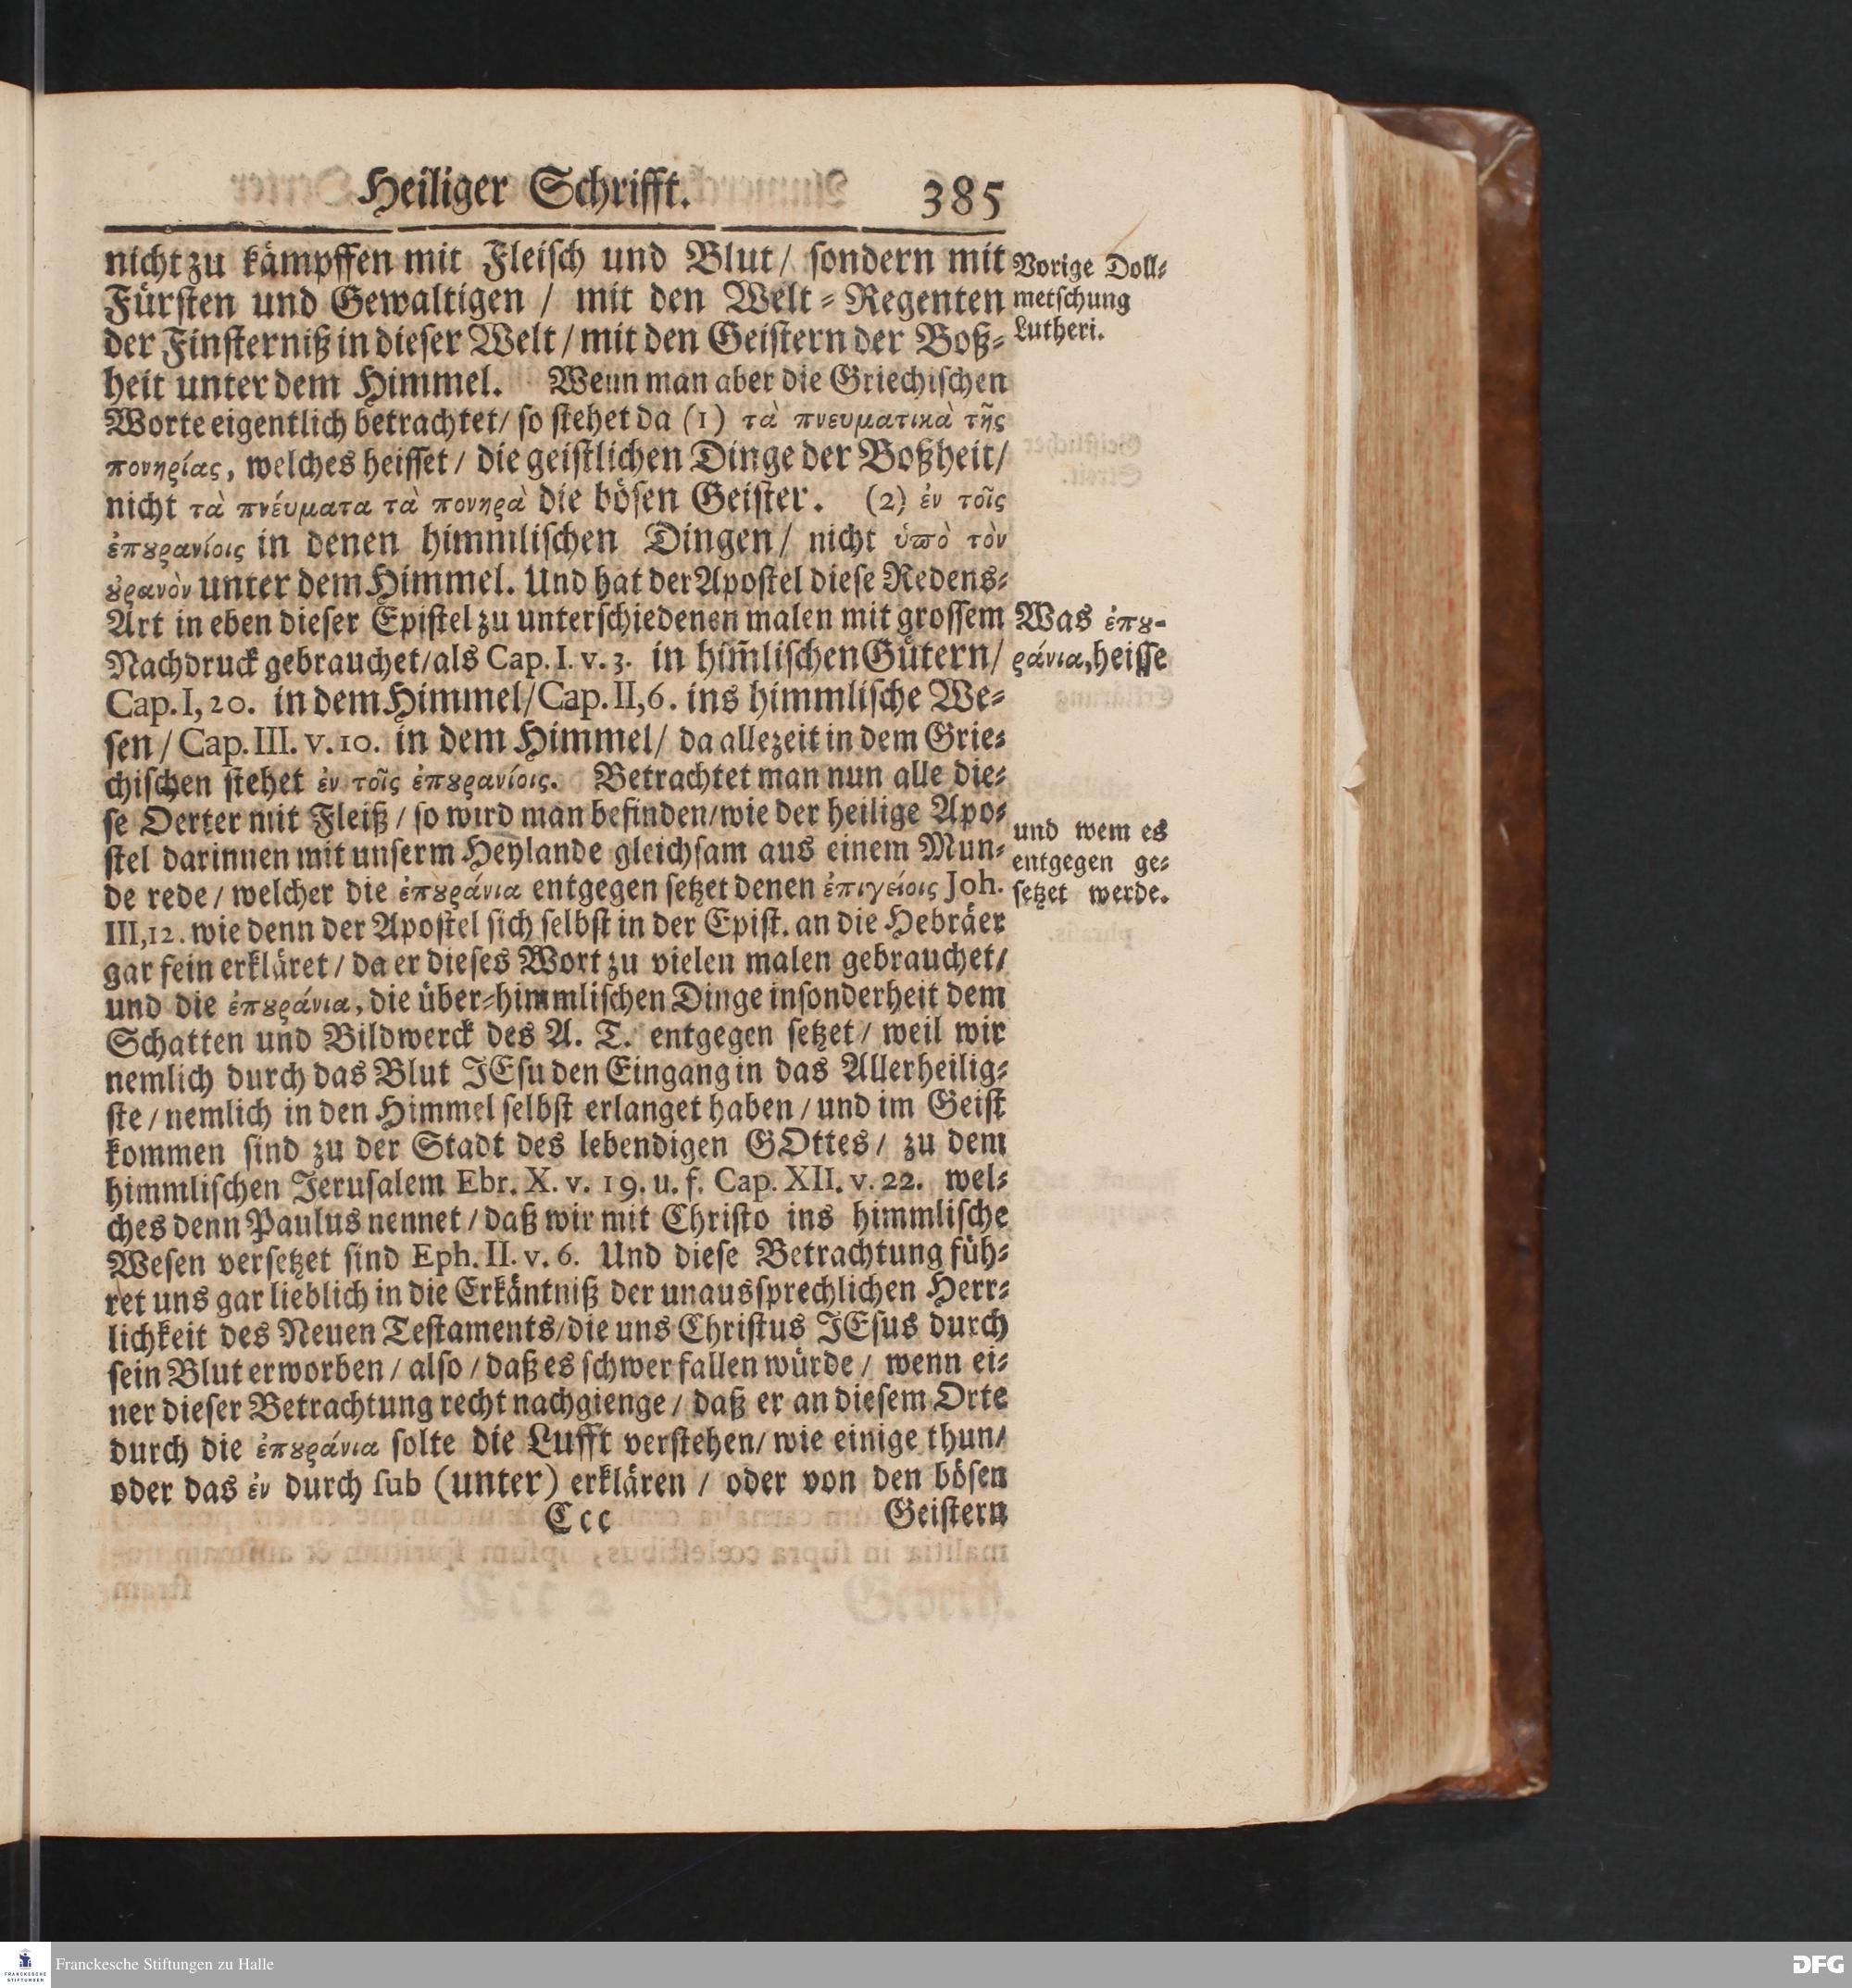 Heiliger Schrifft. 385
nicht zu kämpffen mit Fleisch und Blut / sondern mit
Fürsten und Gewaltigen / mit den Welt-Regenten
der Finsterniß in dieser Welt / mit den Geistern der Boß-
heit unter dem Himmel. Wenn man aber die Griechischen
Vorige Doll-
metschung
Lutheri.
Worte eigentlich betrachtet / so stehet da (1) τὰ πνευματικὰ τῆς
πονηρίας, welches heisset / die geistlichen Dinge der Boßheit /
nicht τὰ πνέυματα τὰ πονηρὰ die bösen Geister. (2) ἐν τοῖς
ἐπȣρανίοις in denen himmlischen Dingen / nicht ὑπὸ τὸν
ȣ̓ρανὸν unter dem Himmel. Und hat der Apostel diese Redens-
Art in eben dieser Epistel zu unterschiedenen malen mit grossem
Nachdruck gebrauchet / als Cap. I. v. 3. in him̃lischen Gütern /
Was ἐπȣ-
ράνια, heisse
Cap. I, 20. in dem Himmel / Cap. II, 6. ins himmlische We-
sen / Cap. III. v. 10. in dem Himmel / da allezeit in dem Grie-
chischen stehet ἐν τοῖς ἐπȣρανίοις. Betrachtet man nun alle die-
se Oerter mit Fleiß / so wird man befinden / wie der heilige Apo-
stel darinnen mit unserm Heylande gleichsam aus einem Mun-
de rede / welcher die ἐπȣράνια entgegen setzet denen ἐπιγείοις Joh.
und wem es
entgegen ge-
setzet werde.
III, 12. wie denn der Apostel sich selbst in der Epist. an die Hebräer
gar fein erkläret / da er dieses Wort zu vielen malen gebrauchet /
und die ἐπȣράνια, die über-himmlischen Dinge insonderheit dem
Schatten und Bildwerck des A. T. entgegen setzet / weil wir
nemlich durch das Blut JEsu den Eingang in das Allerheilig-
ste / nemlich in den Himmel selbst erlanget haben / und im Geist
kommen sind zu der Stadt des lebendigen GOttes / zu dem
himmlischen Jerusalem Ebr. X. v. 19. u. f. Cap. XII. v. 22. wel-
ches denn Paulus nennet / daß wir mit Christo ins himmlische
Wesen versetzet sind Eph. II. v. 6. Und diese Betrachtung füh-
ret uns gar lieblich in die Erkäntniß der unaussprechlichen Herr-
lichkeit des Neuen Testaments / die uns Christus JEsus durch
sein Blut erworben / also / daß es schwer fallen würde / wenn ei-
ner dieser Betrachtung recht nachgienge / daß er an diesem Orte
durch die ἐπȣράνια solte die Lufft verstehen / wie einige thun /
oder das ἐν durch sub (unter) erklären / oder von den bösen
Ccc Geistern
Franckesche Stiftungen zu Halle
FRANCKESCHE STIFTUNGEN
DFG